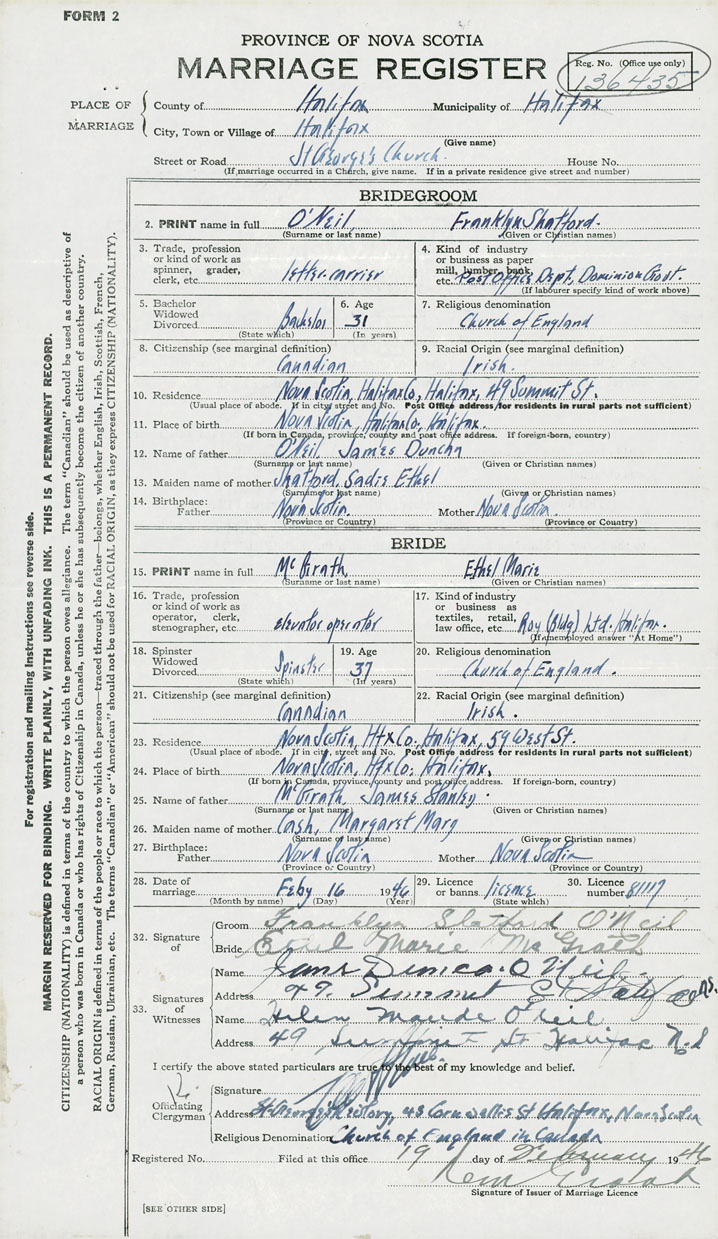 FORM 2
PROVINCE OF NOVA SCOTIA
MARRIAGE REGISTER
Reg. No. (Office use only)
136435
PLACE OF MARRIAGE
County of Halifax Municipality of Halifax
City, Town or Village of Halifax
(Give name)
Street or Road St George's Church House No.
(If marriage occurred in a Church, give name. If in a private residence give street and number)
BRIDEGROOM
2. PRINT name in full O'Neil, Franklyn Shatford.
(Surname or last name) (Given or Christian names)
3. Trade, profession or kind of work as spinner, grader, clerk, etc. letter carrier
4. Kind of industry or business as paper mill, lumber, bank, etc. Post Office Dept, Dominion Govt.
(If labourer specify kind of work above)
5. Bachelor Widowed Divorced Bachelor
(State which)
6. Age 31
(In years)
7. Religious denomination
Church of England
8. Citizenship (see marginal definition)
Canadian
9. Racial Origin (see marginal definition)
Irish.
10. Residence Nova Scotia, Halifax Co, Halifax, 49 Summit St.
(Usual place of abode. If in city street and No. Post Office address for residents in rural parts not sufficient)
11. Place of birth Nova Scotia, Halifax Co, Halifax.
(If born in Canada, province, county and post office address. If foreign-born, country)
12. Name of father O'Neil, James Duncan
(Surname or last name) (Given or Christian names)
13. Maiden name of mother Shatford, Sadie Ethel
(Surname or last name) (Given or Christian names)
14. Birthplace: Father Nova Scotia. Mother Nova Scotia.
(Province or Country) (Province or Country)
BRIDE
15. PRINT name in full McGrath, Ethel Marie
(Surname or last name) (Given or Christian names)
16. Trade, profession or kind of work as operator, clerk, stenographer, etc. elevator operator
17. Kind of industry or business as textiles, retail, law office, etc. Roy (Bldg) Ltd. Halifax.
(If unemployed answer "At Home")
18. Spinster Widowed Divorced Spinster
(State which)
19. Age 37
(In years)
20. Religious denomination
Church of England.
21. Citizenship (see marginal definition)
Canadian
22. Racial Origin (see marginal definition)
Irish.
23. Residence Nova Scotia, Hfx Co, Halifax, 59 West St.
(Usual place of abode. If in city street and No. Post Office address for residents in rural parts not sufficient)
24. Place of birth Nova Scotia, Hfx Co, Halifax.
(If born in Canada, province, county and post office address. If foreign-born, country)
25. Name of father McGrath, James Stanley
(Surname or last name) (Given or Christian names)
26. Maiden name of mother Cash, Margaret Mary
(Surname or last name) (Given or Christian names)
27. Birthplace: Father Nova Scotia Mother Nova Scotia
(Province or Country) (Province or Country)
28. Date of marriage Feby 16 1946
(Month by name) (Day) (Year)
29. Licence or banns licence
(State which)
30. Licence number 81117
32. Signature of
Groom Franklyn Shatford O'Neil
Bride Ethel Marie McGrath
33. Signatures of Witnesses
Name James Duncan O'Neil
Address 49 Summit St Halifax N.S.
Name Helen Maude O'Neil
Address 49 Summit St Halifax N.S
I certify the above stated particulars are true to the best of my knowledge and belief.
Officiating Clergyman
Signature
Address St. George's Rectory, 43 Cornwallis St Halifax, Nova Scotia
Religious Denomination Church of England in Canada
Registered No. Filed at this office 19 day of February 1946
Signature of Issuer of Marriage Licence
[SEE OTHER SIDE]
For registration and mailing Instructions see reverse side.
MARGIN RESERVED FOR BINDING. WRITE PLAINLY, WITH UNFADING INK. THIS IS A PERMANENT RECORD.
CITIZENSHIP (NATIONALITY) is defined in terms of the country to which the person owes allegiance. The term "Canadian" should be used as descriptive of
a person who was born in Canada or who has rights of Citizenship in Canada, unless he or she has subsequently become the citizen of another country.
RACIAL ORIGIN is defined in terms of the people or race to which the person—traced through the father—belongs, whether English, Irish, Scottish, French,
German, Russian, Ukrainian, etc. The terms "Canadian" or "American" should not be used for RACIAL ORIGIN, as they express CITIZENSHIP (NATIONALITY).